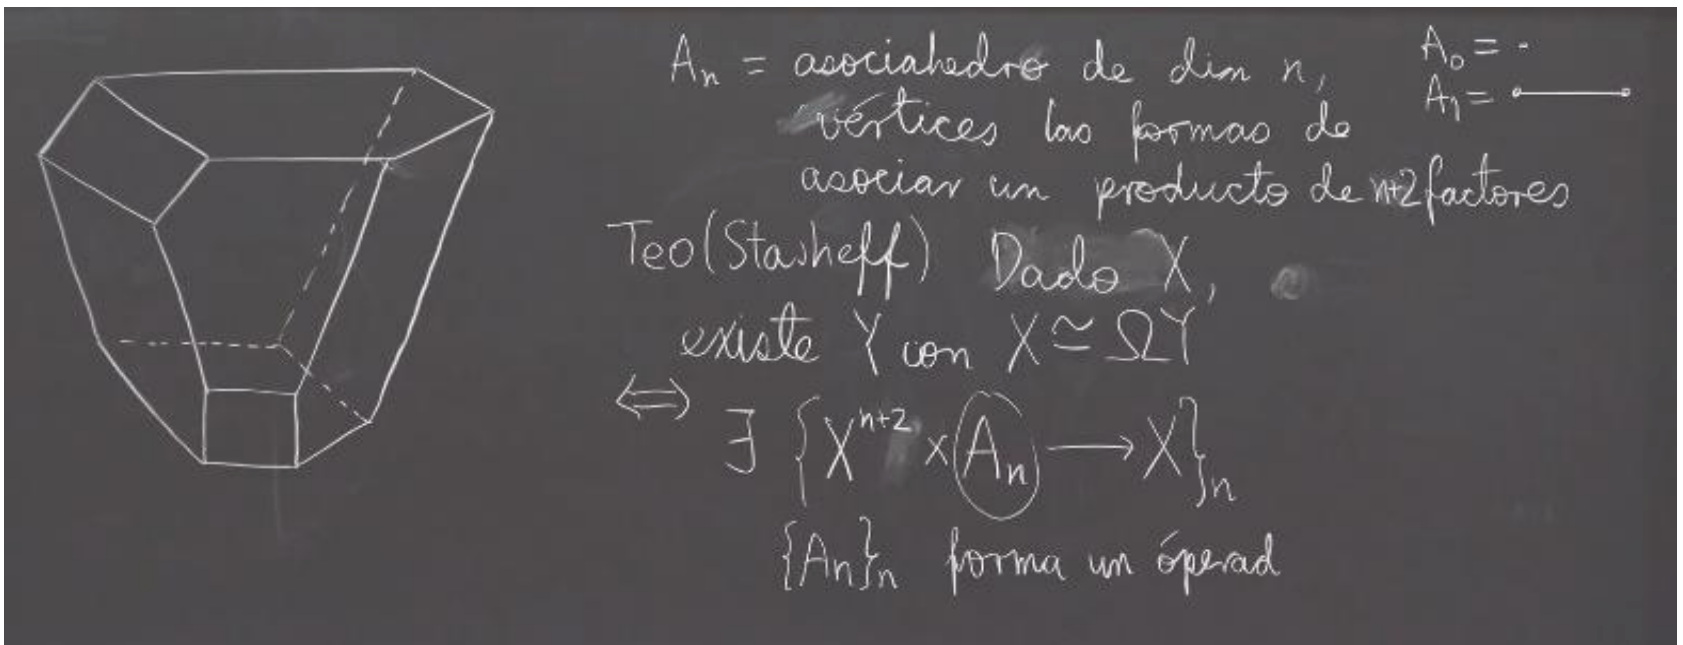 Aₙ = asociahedro de dim n,
vértices las formas de
asociar un producto de n+2 factores
A₀ = ·
A₁ =
Teo (Stasheff) Dado X,
existe Y con X ≃ ΩY
⇔ ∃ {Xⁿ⁺² × Aₙ → X}ₙ
{Aₙ}ₙ forma un óperad